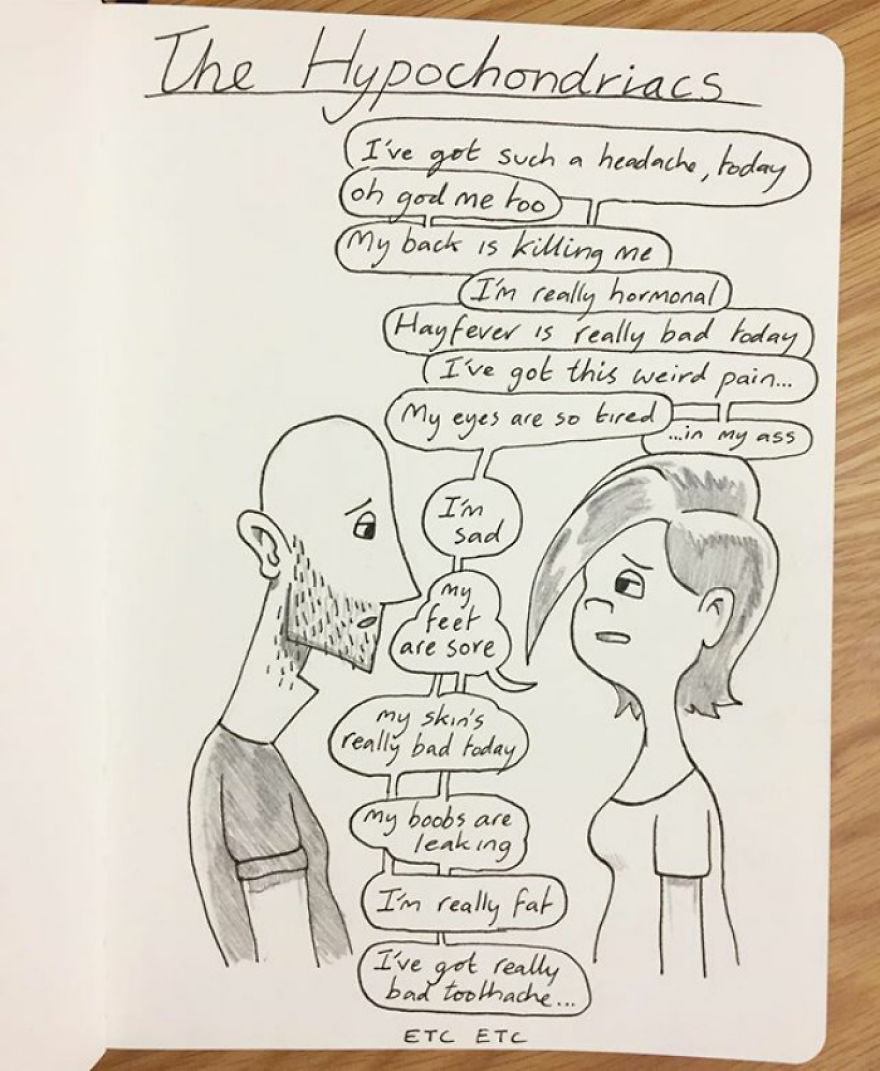 The Hypochondriacs
I've got such a headache, today
oh god me too
My back is killing me
I'm really hormonal
Hayfever is really bad today
I've got this weird pain...
My eyes are so tired
...in my ass
I'm
sad
my
feet
are sore
my skin's
really bad today
my boobs are
leaking
I'm really fat
I've got really
bad toothache...
ETC ETC